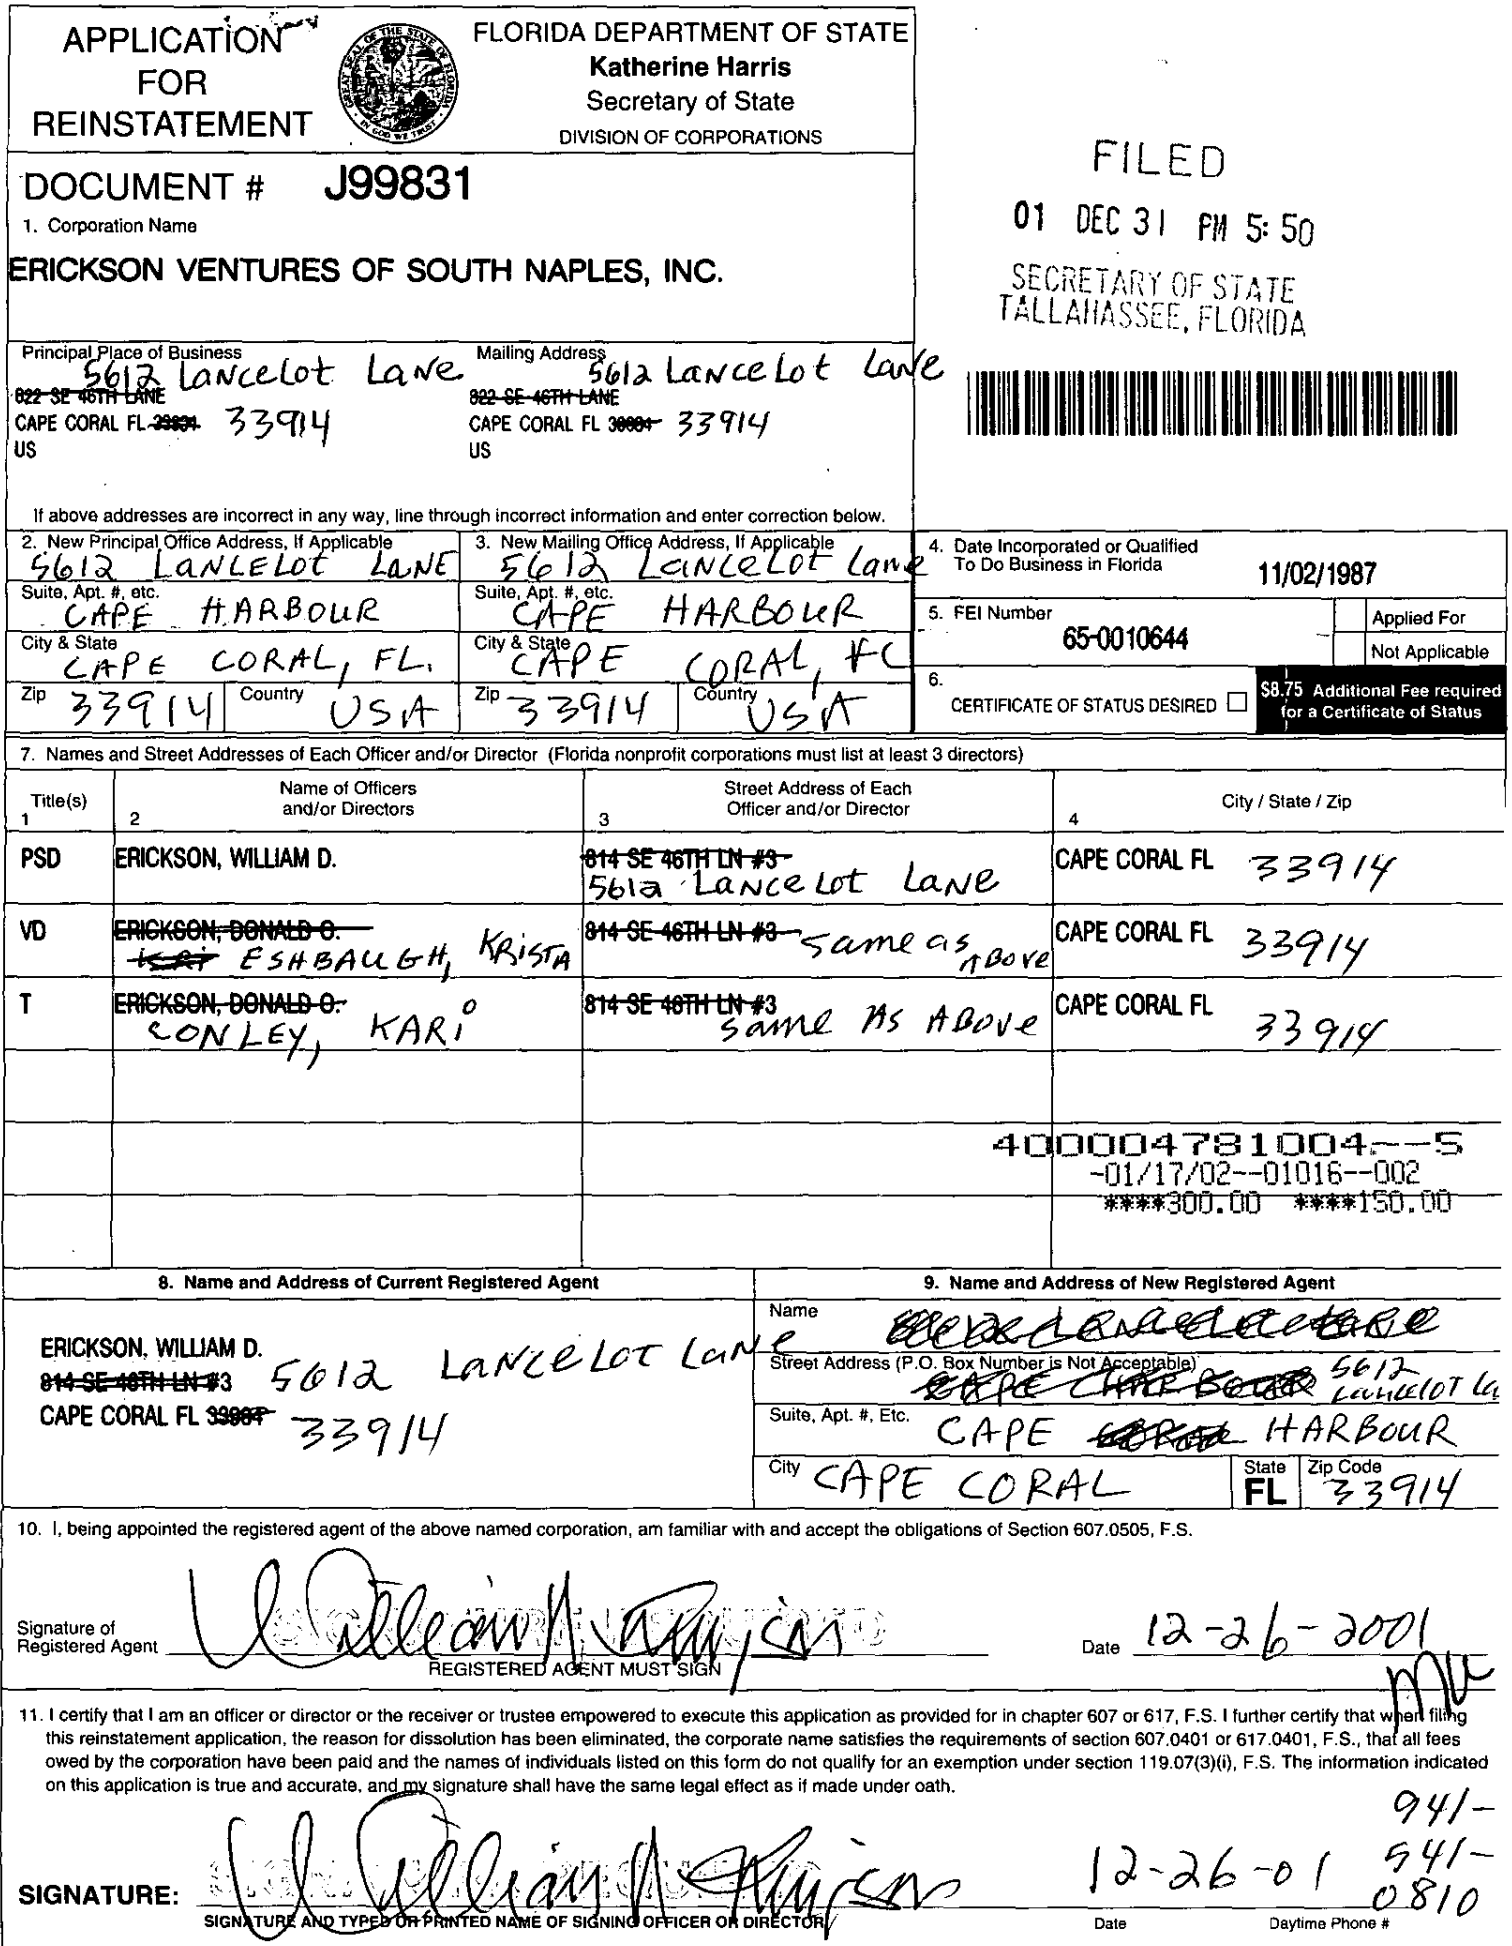 APPLICATION
FOR
REINSTATEMENT
FLORIDA DEPARTMENT OF STATE
Katherine Harris
Secretary of State
DIVISION OF CORPORATIONS
GREAT SEAL OF THE STATE OF FLORIDA
IN GOD WE TRUST
FILED
01 DEC 31 PM 5:50
SECRETARY OF STATE
TALLAHASSEE, FLORIDA
DOCUMENT # J99831
1. Corporation Name
ERICKSON VENTURES OF SOUTH NAPLES, INC.
Principal Place of Business
5612 LANCELOT LANE
822 SE 46TH LANE
CAPE CORAL FL 33914
US
Mailing Address
5612 LANCELOT LANE
822 SE 46TH LANE
CAPE CORAL FL 33914
US
If above addresses are incorrect in any way, line through incorrect information and enter correction below.
2. New Principal Office Address, If Applicable
5612 LANCELOT LANE
Suite, Apt. #, etc.
CAPE HARBOUR
City & State
CAPE CORAL, FL.
Zip 33914 Country USA
3. New Mailing Office Address, If Applicable
5612 LANCELOT Lane
Suite, Apt. #, etc.
CAPE HARBOUR
City & State
CAPE CORAL, FL
Zip 33914 Country USA
4. Date Incorporated or Qualified
To Do Business in Florida 11/02/1987
5. FEI Number
65-0010644
Applied For
Not Applicable
6.
CERTIFICATE OF STATUS DESIRED
$8.75 Additional Fee required
for a Certificate of Status
7. Names and Street Addresses of Each Officer and/or Director (Florida nonprofit corporations must list at least 3 directors)
Title(s)
1
Name of Officers
and/or Directors
2
Street Address of Each
Officer and/or Director
3
City / State / Zip
4
PSD ERICKSON, WILLIAM D. 814 SE 46TH LN #3 CAPE CORAL FL 33914
5612 LANCELOT LANE
VD ERICKSON, DONALD O. 814 SE 46TH LN #3 same as ABove CAPE CORAL FL 33914
ESHBAUGH, KRISTA
T ERICKSON, DONALD O. 814 SE 46TH LN #3 CAPE CORAL FL 33914
CONLEY, KARI same AS ABove
400004781004--5
-01/17/02--01016--002
****300.00 ****150.00
8. Name and Address of Current Registered Agent
ERICKSON, WILLIAM D.
814 SE 46TH LN #3 5612 LANCELOT LANE
CAPE CORAL FL 33914
9. Name and Address of New Registered Agent
Name
Street Address (P.O. Box Number is Not Acceptable)
5612 Lancelot La
Suite, Apt. #, Etc.
CAPE HARBOUR
City CAPE CORAL State FL Zip Code 33914
10. I, being appointed the registered agent of the above named corporation, am familiar with and accept the obligations of Section 607.0505, F.S.
Signature of
Registered Agent
REGISTERED AGENT MUST SIGN
Date 12-26-2001
11. I certify that I am an officer or director or the receiver or trustee empowered to execute this application as provided for in chapter 607 or 617, F.S. I further certify that when filing
this reinstatement application, the reason for dissolution has been eliminated, the corporate name satisfies the requirements of section 607.0401 or 617.0401, F.S., that all fees
owed by the corporation have been paid and the names of individuals listed on this form do not qualify for an exemption under section 119.07(3)(i), F.S. The information indicated
on this application is true and accurate, and my signature shall have the same legal effect as if made under oath.
941-
541-
0810
SIGNATURE:
12-26-01
SIGNATURE AND TYPED OR PRINTED NAME OF SIGNING OFFICER OR DIRECTOR
Date
Daytime Phone #